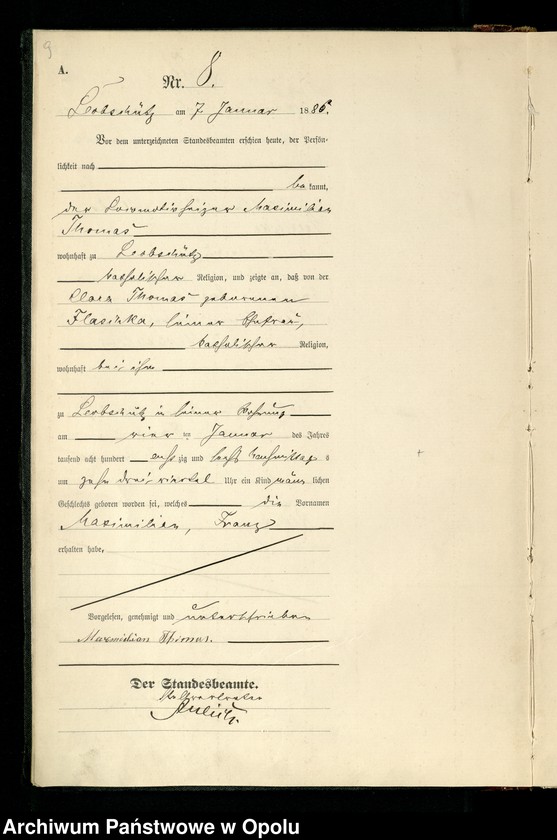 9
A.
Nr. 8.
Leobschütz am 7. Januar 1886.
Vor dem unterzeichneten Standesbeamten erschien heute, der Persön-
lichkeit nach
be kannt,
der Locomotivheizer Maximilian
Thomas
wohnhaft zu Leobschütz
katholischer Religion, und zeigte an, daß von der
Clara Thomas geborenen
Flaschka, seiner Ehefrau,
katholischer Religion,
wohnhaft bei ihm
zu Leobschütz in seiner Wohnung
am vier ten Januar des Jahres
tausend acht hundert acht zig und sechs Nachmittag s
um zehn drei viertel Uhr ein Kind männ lichen
Geschlechts geboren worden sei, welches die Vornamen
Maximilian, Franz
erhalten habe.
Vorgelesen, genehmigt und unterschrieben
Maxmilian Thomas.
Der Standesbeamte.
In Vertretung
Archiwum Państwowe w Opolu